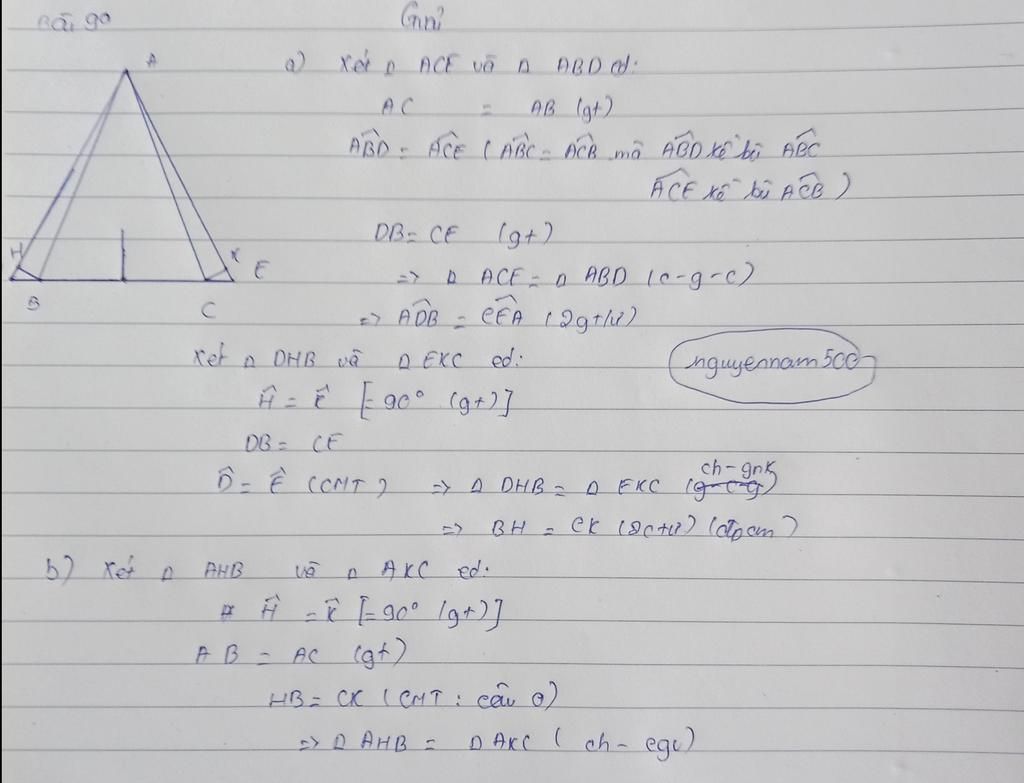 Bài 90
Giải
A
H
B
C
K
E
a) Xét Δ ACE và Δ ABD có:
AC = AB (gt)
ABD = ACE (ABC = ACB mà ABD kề bù ABC
ACE kề bù ACB)
DB = CE (gt)
=> Δ ACE = Δ ABD (c-g-c)
=> ADB = CEA (2g+ư)
Xét Δ DHB và Δ EKC có:
nguyennam500
Ĥ = K̂ [= 90° (gt)]
DB = CE
D̂ = Ê (CMT) => Δ DHB = Δ EKC (g-c-g) ch-gnk
=> BH = CK (2c+ư) (đpcm)
b) Xét Δ AHB và Δ AKC có:
Ĥ = K̂ [= 90° (gt)]
AB = AC (gt)
HB = CK (CMT: câu a)
=> Δ AHB = Δ AKC (ch-cgv)